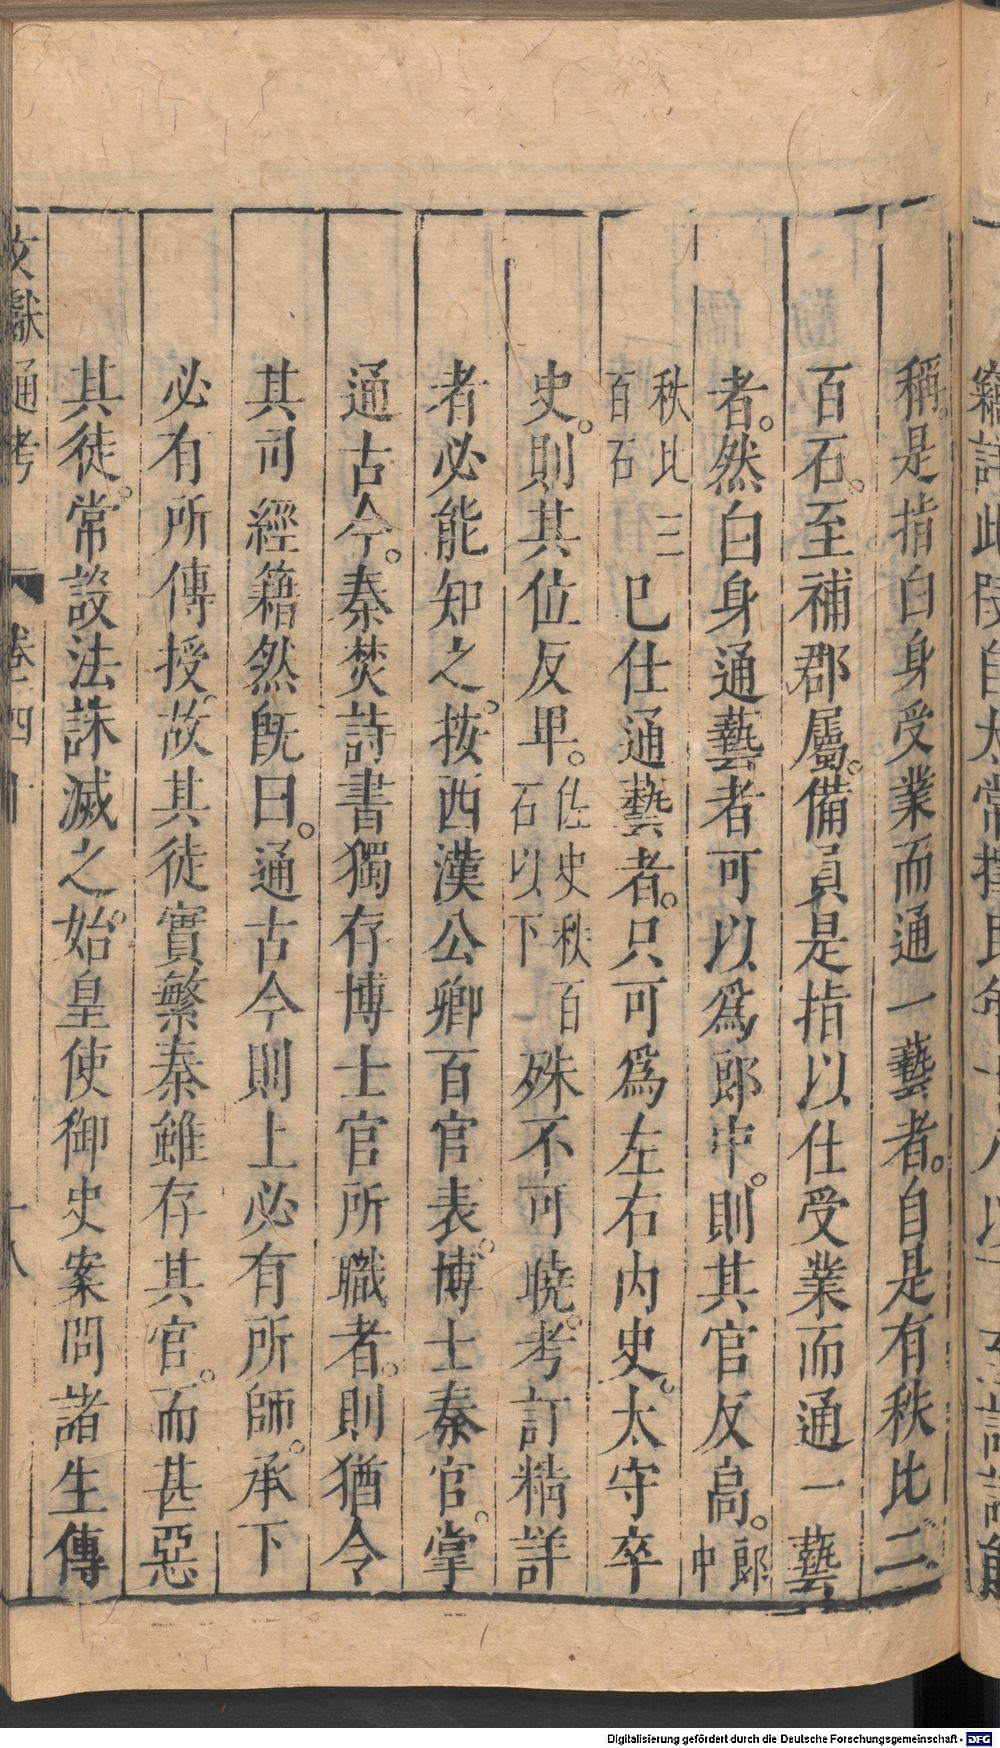 稱是指白身受業而通一藝者自是有秩比二
百石至補郡屬備員是指以仕受業而通一藝
者然白身通藝者可以爲郎中則其官反高郎中
秩比三百石已仕通藝者只可爲左右內史太守卒
史則其位反卑佐史秩百石以下殊不可曉考訂精詳
者必能知之按西漢公卿百官表博士秦官掌
通古今秦焚詩書獨存博士官所職者則猶令
其司經籍然旣曰通古今則上必有所師承下
必有所傳授故其徒實繁秦雖存其官而甚惡
其徒常設法誅滅之始皇使御史案問諸生傳
文獻通考 卷四十 十八
Digitalisierung gefördert durch die Deutsche Forschungsgemeinschaft - DFG